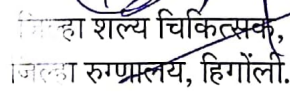 जिल्हा शल्य चिकित्सक,
जिल्हा रुग्णालय, हिगोंली.